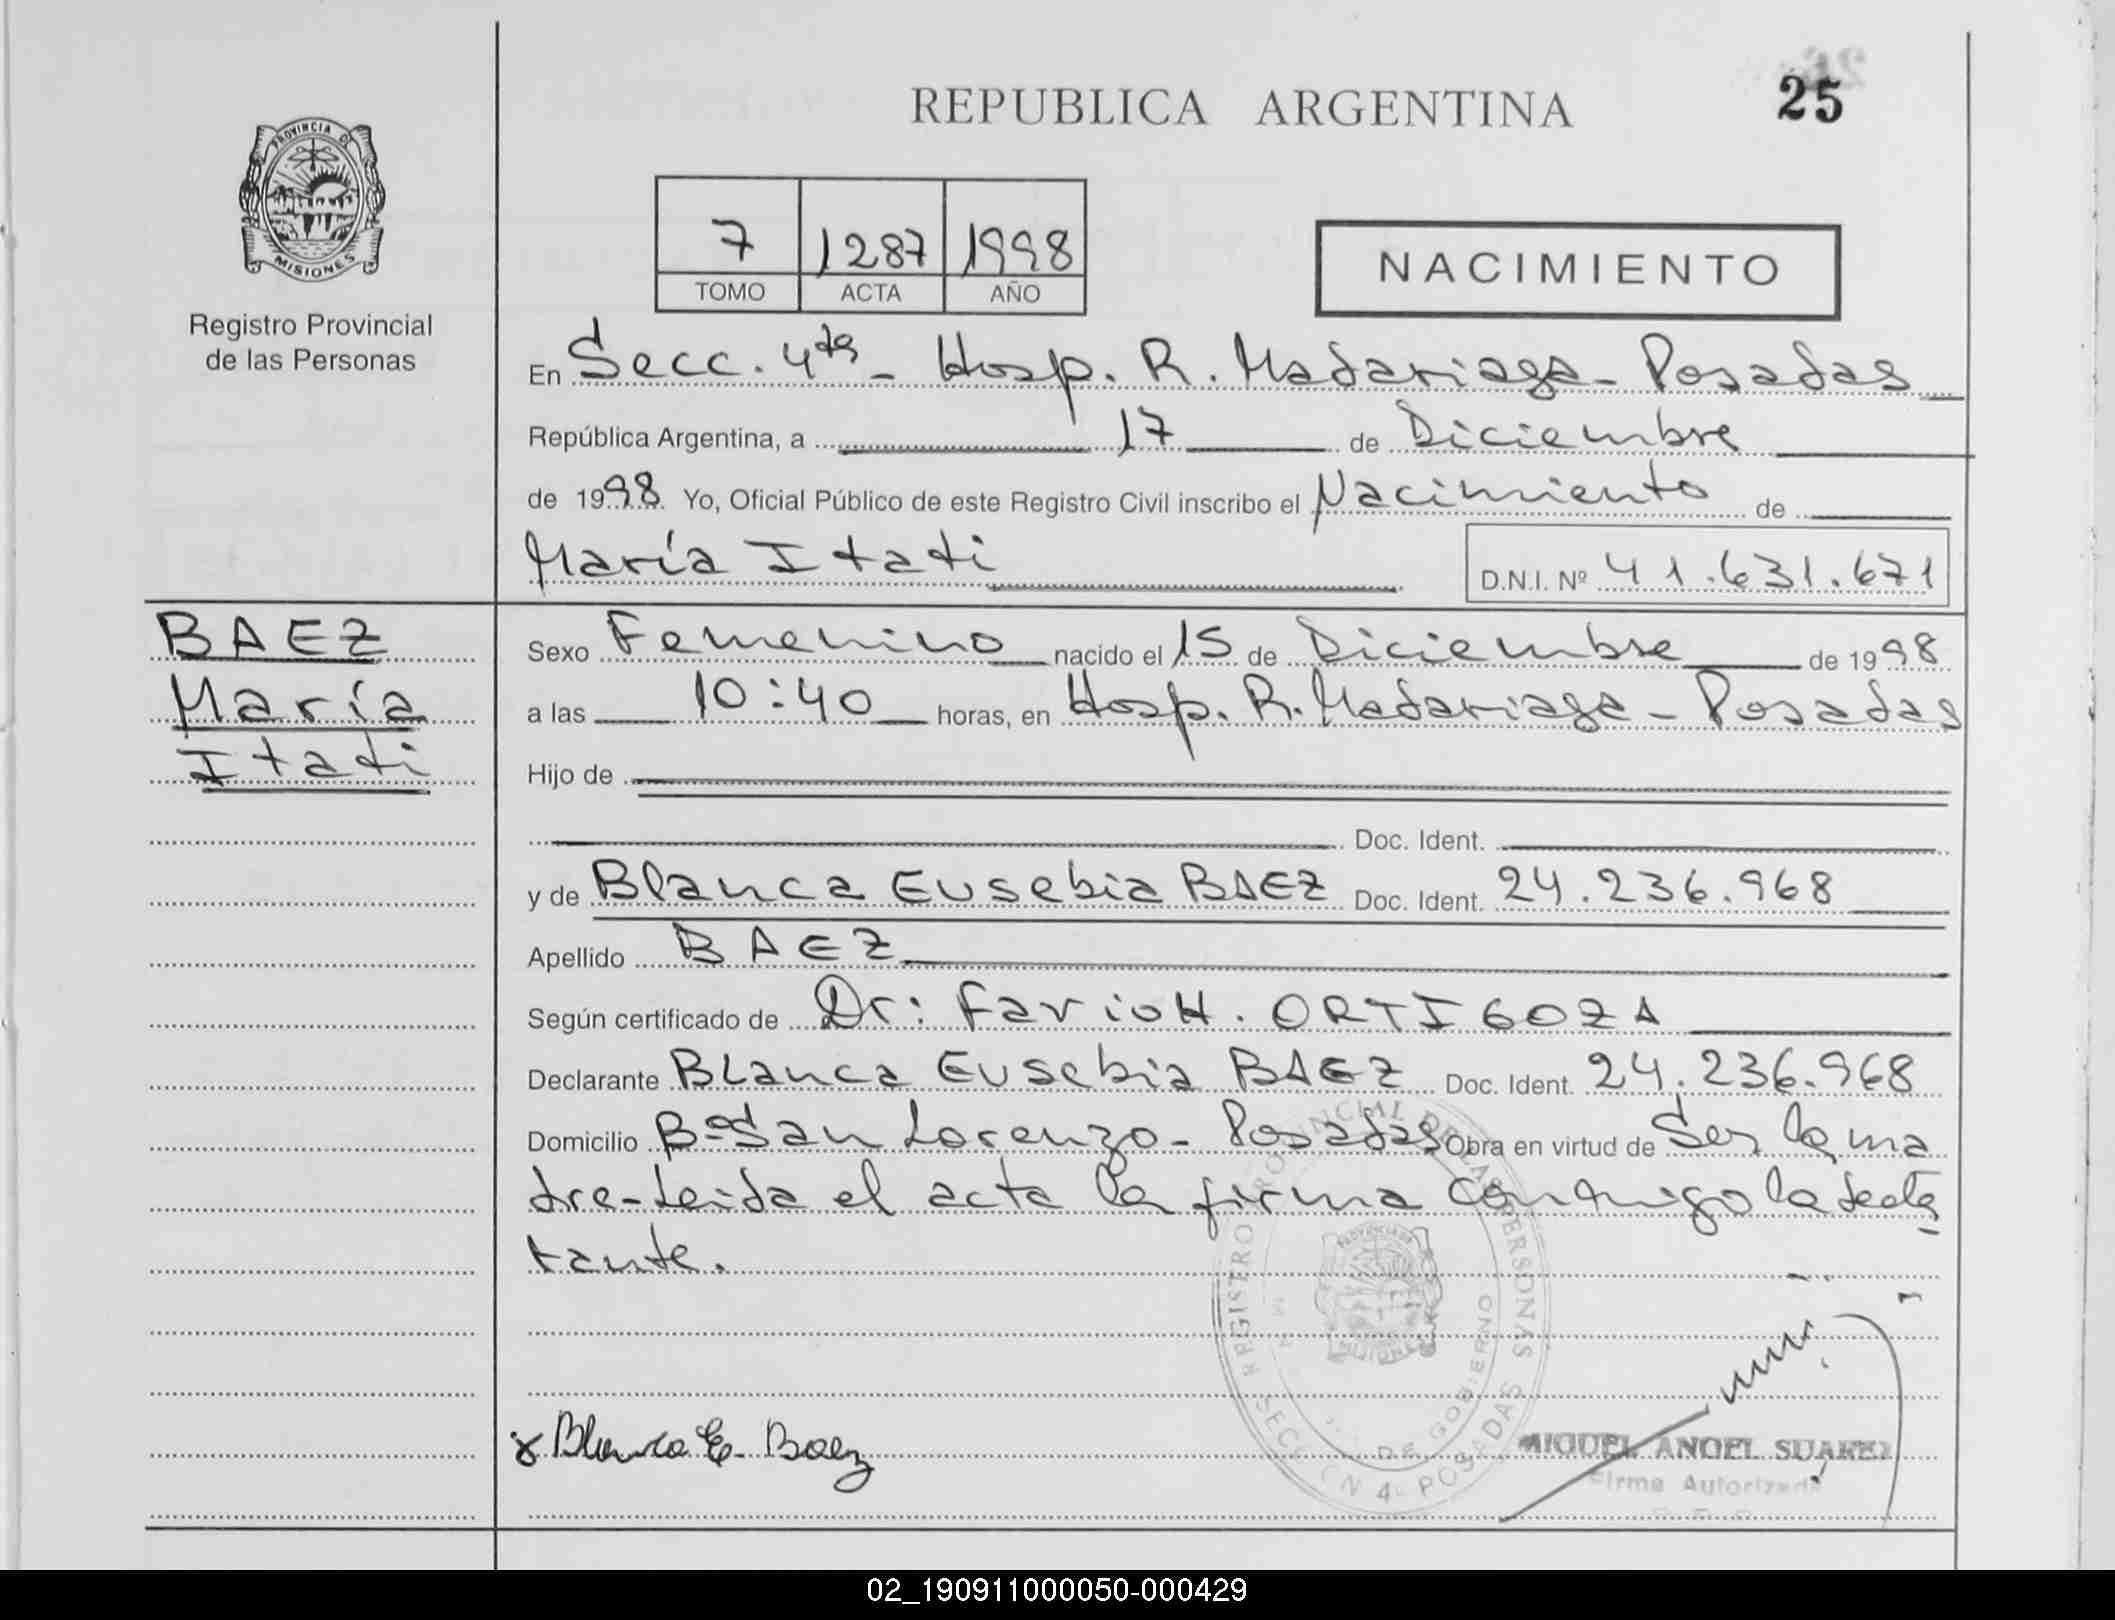 REPUBLICA ARGENTINA
25
PROVINCIA DE
MISIONES
Registro Provincial
de las Personas
7 1287 1998
TOMO ACTA AÑO
NACIMIENTO
En Secc. 4ta - Hosp. R. Madariaga - Posadas
República Argentina, a 17 de Diciembre
de 1998 Yo, Oficial Público de este Registro Civil inscribo el Nacimiento de
María Itati
D.N.I. Nº 41.631.671
BAEZ
María
Itati
Sexo Femenino nacido el 15 de Diciembre de 1998
a las 10:40 horas, en Hosp. R. Madariaga - Posadas
Hijo de
Doc. Ident.
y de Blanca Eusebia BAEZ Doc. Ident. 24.236.968
Apellido BAEZ
Según certificado de Dr: Favio H. ORTIGOZA
Declarante BLanca Eusebia BAEZ Doc. Ident. 24.236.968
Domicilio Bº San Lorenzo - Posadas Obra en virtud de Ser la ma
dre - Leida el acta la firma conmigo la decla
rante.
REGISTRO PROVINCIAL DE LAS PERSONAS
DE GOBIERNO
SECCION 4ª POSADAS
Blanca E. Baez
MIGUEL ANGEL SUAREZ
Firma Autorizada
02_190911000050-000429